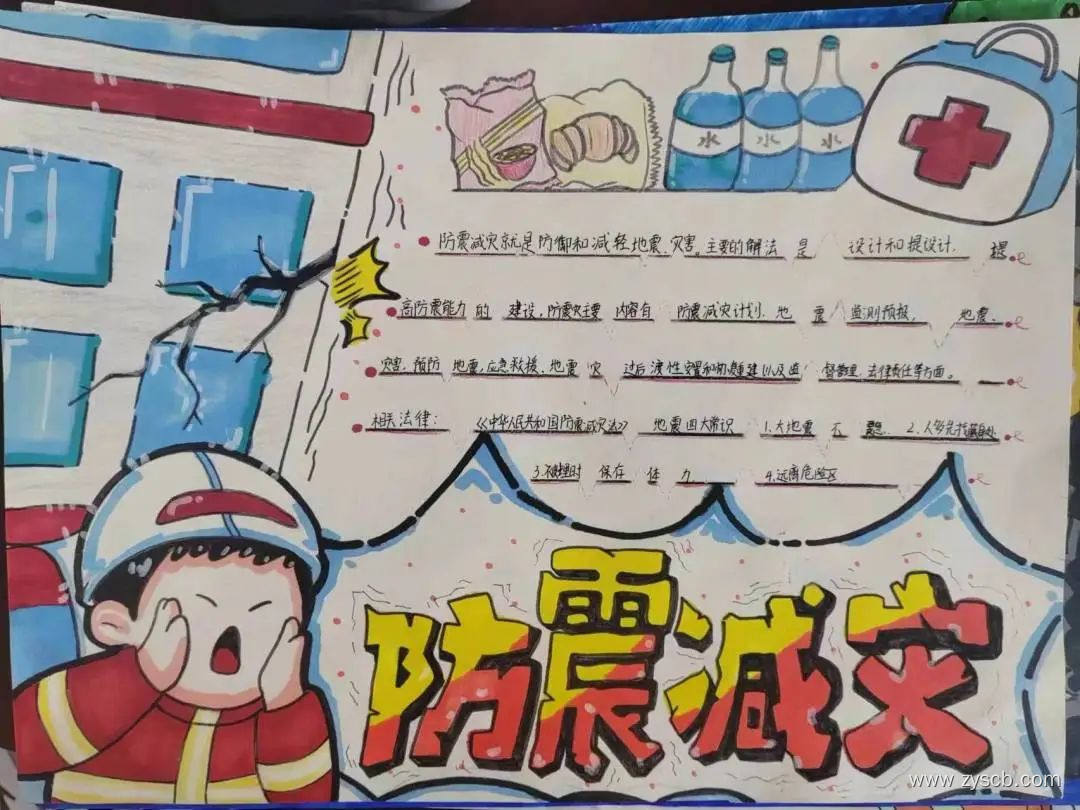 水 水 水
防震减灾就是防御和减轻地震,灾害。主要的解法 是 设计和提设计, 提
高防震能力 的 建设,防震灾主要 内容有 防震减灾计划,地 震 监测预报, 地震、
灾害,预防 地震,应急救援,地震 灾 过后 渡性安置和 重建 以及监 督管理,法律责任等方面。
相关法律: 《中华人民共和国防震减灾法》 地震四大常识 1.大地震 不 2.人多先找藏身处
3.被埋时 保存 体 力 4.远离危险区
防震减灾
www.zyscb.com